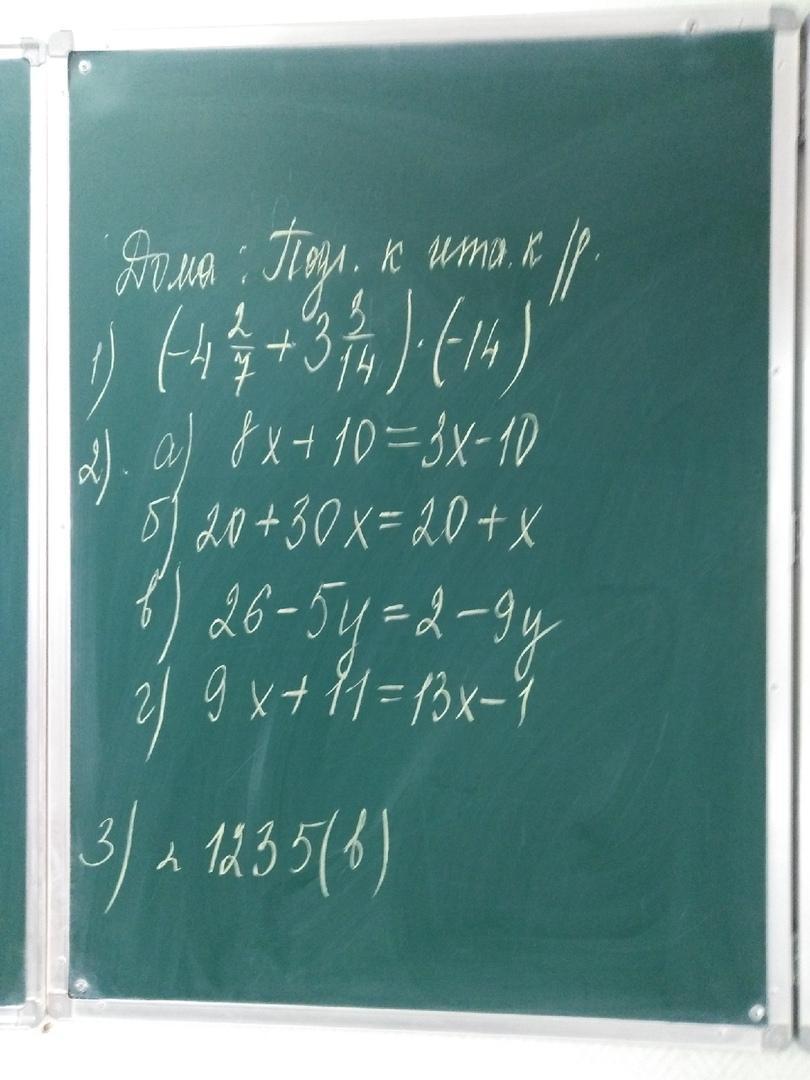 Дома: Подг. к итог. к/р.
1) (-4 2/7 + 3 3/14) · (-14)
2). а) 8x + 10 = 3x - 10
б) 20 + 30x = 20 + x
в) 26 - 5y = 2 - 9y
г) 9x + 11 = 13x - 1
3) 1235(в)